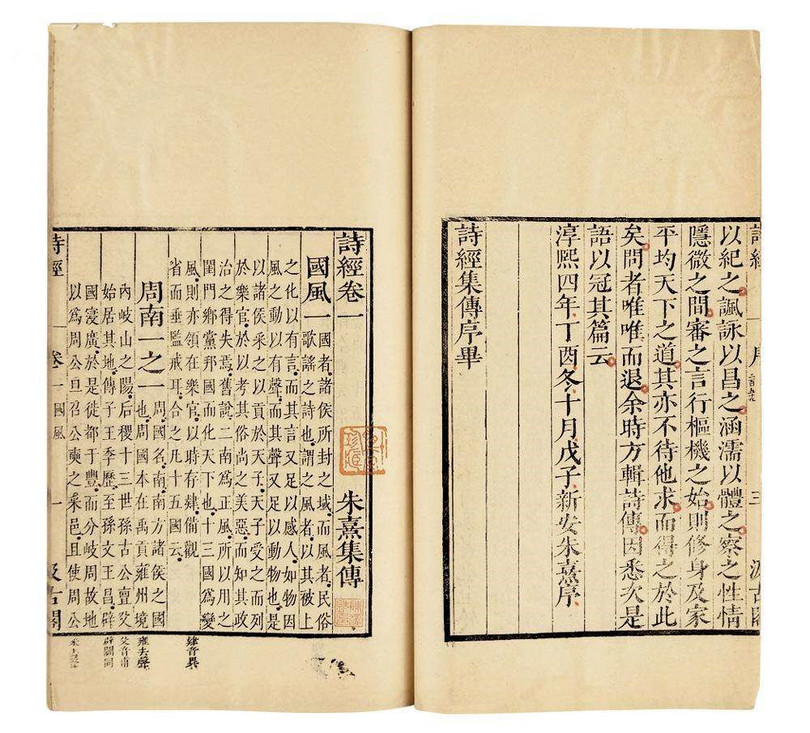 詩經
序
三
汲古閣
以紀之諷詠以昌之涵濡以體之察之性情
隱微之間審之言行樞機之始則修身及家
平均天下之道其亦不待他求而得之於此
矣問者唯唯而退余時方輯詩傳因悉次是
語以冠其篇云
淳熙四年丁酉冬十月戊子新安朱熹序
詩經集傳序畢
詩經卷一
朱熹集傳
國風一
國者諸侯所封之域而風者民俗
歌謠之詩也謂之風者以其被上
之化以有言而其言又足以感人如物因
風之動以有聲而其聲又足以動物也是
以諸侯采之以貢於天子天子受之而列
於樂官於以考其俗尚之美惡而知其政
治之得失焉舊說二南為正風所以用之
閨門鄉黨邦國而化天下也十三國爲變
風則亦領在樂官以時存肄備觀
省而垂監戒耳合之凡十五國云
肄音異
周南一之一
周國名南南方諸侯之國
也周國本在禹貢雍州境
雍去聲
內岐山之陽后稷十三世孫古公亶父
父音甫
始居其地傳子王季歷至孫文王昌辟
辟闢同
國寖廣於是徙都于豐而分岐周故地
以為周公旦召公奭之采邑且使周公
詩經
卷一
國風
一
汲古閣